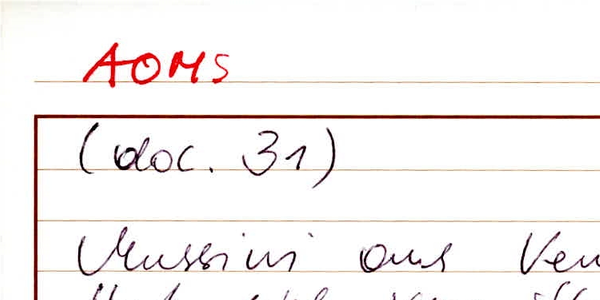 AOMS
(doc. 31)
Mussini aus Ven